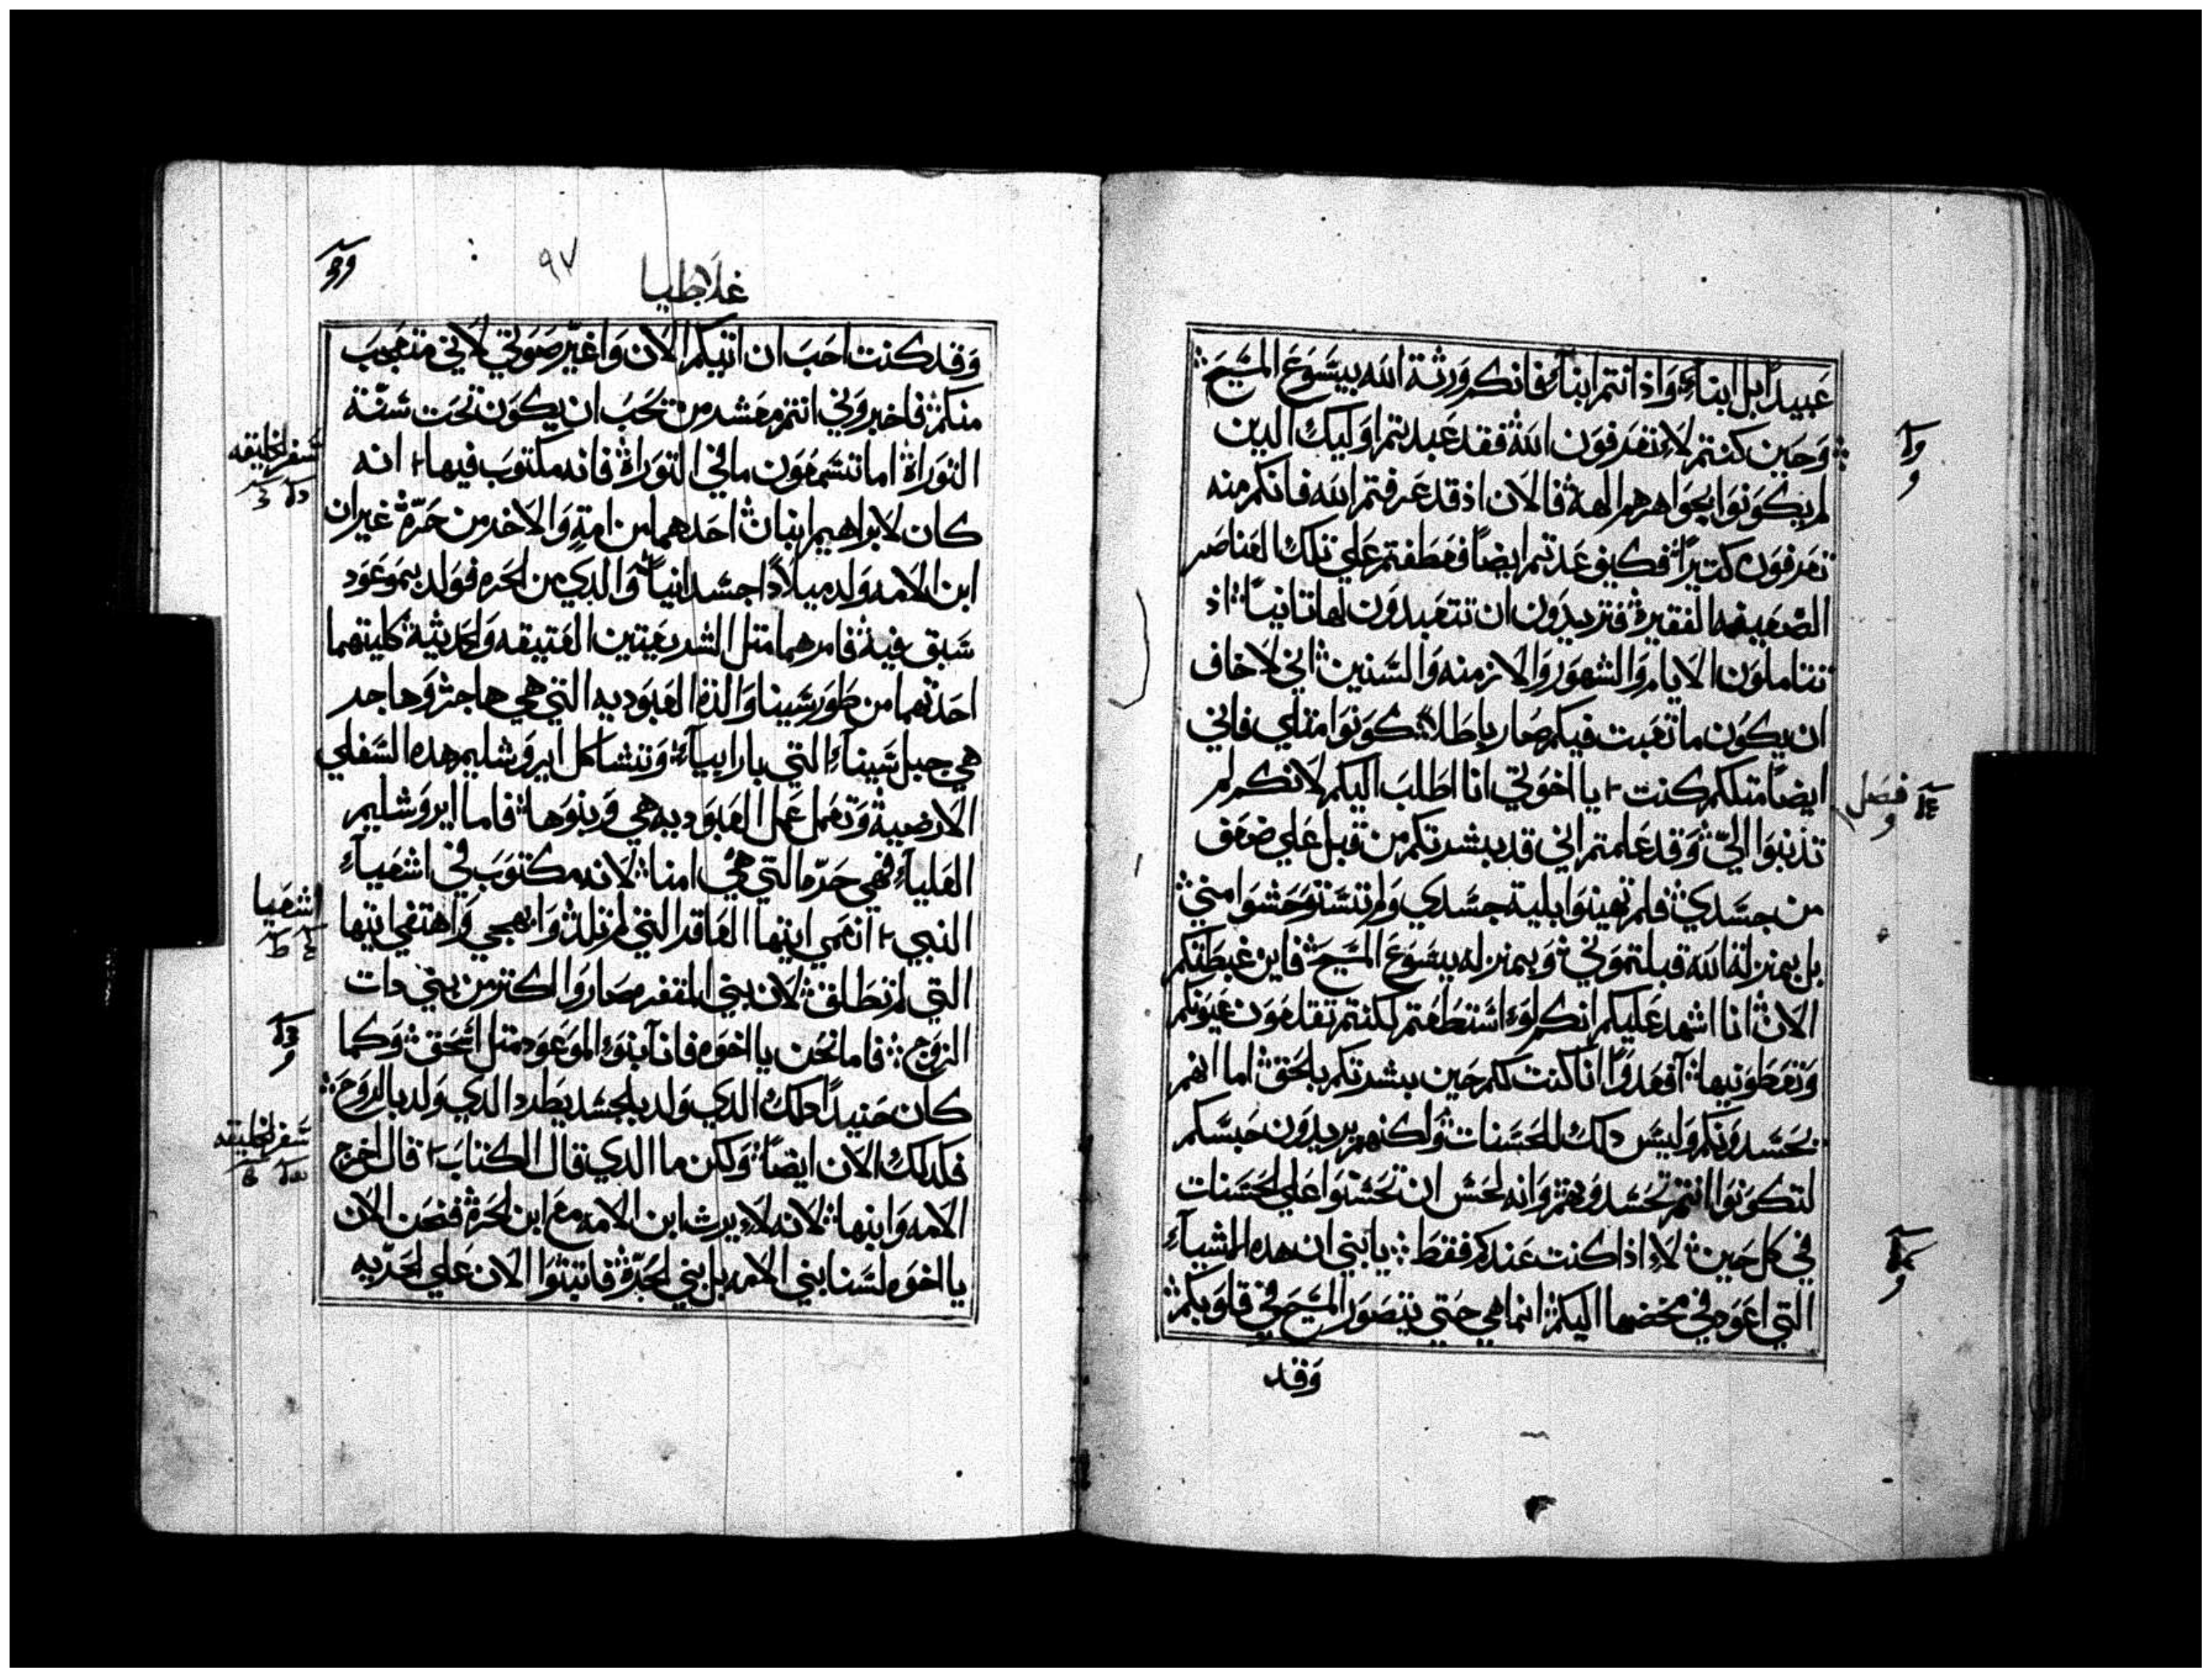 عبيداً بل ابناءً وَاذ انتم ابناءً فانكم وَرثة الله بيسَوَع المسَيحَ
وَحَين كنتم لاَ تعَرفوَن الله فقد عَبدتم اوَليك الدين
لم يكوَنوَا بجوَاهرهم الهة فالاَن اذ قد عَرفتم الله فانكم منه
تعَرفوَن كتيراً فكيف عَدتم ايضاً فعَطفتم عَلي تلك العَناصَر
الصَعَيفه الفقيرة فتريدوَن ان تتعَبدوَن لها تانياً اذ
تتاملوَن الاَيام وَالشهوَر وَالاَزمنه وَالسَنين اني لاَخاف
ان يكوَن ما تعَبت فيكم صَار باطَلاً كوَنوَا متلي فاني
ايضاً متلكم كنت يا اخوَتي انا اطَلبَ اليكم لاَنكم لم
تذنبوَا اليّ وَقد عَلمتم اني قد بشرتكم من قبل عَلي ضعَف
من جسَدي فلم تهينوَا بلية جسَدي وَلم تسَتوَحَشوَا مني
بل بمنزلة الله قبلتموَني وَبمنزله يسَوَع المسَيحَ فاين غبطَتكم
الاَن انا اشهد عَليكم انكم لوَ اسَتطَعَتم لكنتم تقلعَوَن عَيوَنكم
وَتعَطَوَنيها افعَدوَّاً انا كنت لكم حَين بشرتكم بالحَق اما انهم
يحَسَدوَنكم وَليسَ دلك للحَسَنات وَلكنهم يريدوَن حَبسَكم
لتكوَنوَا انتم تحَسَدوَنهم وَانه لحَسَن ان تحَسَدوَا عَلي الحَسَنات
في كل حَين لاَ اذا كنت عَندكم فقطَ يا بني ان هده الاشياَء
التي اعَوَد في مخضها اليكم انما هي حَتي يتصَوَر المسَيحَ في قلوَبكم
وَقد
وا
و
فصَل
و
و
٩٧
غلاطيا
وَقد كنت احَبَ ان اتيكم الاَن وَاغيّر صَوَتي لاَني متعَجبَ
منكم فاخبروَني انتم معَشر من تحَبَ ان يكوَن تحَت سَنّة
التوَراة اما تسَمعَوَن ما في التوَراة فانه مكتوَبَ فيها انه
كان لاَبراهيم ابنان احَدهما من امةٍ وَالاَخر من حَرّة غير ان
ابن الاَمه وَلد ميلاَداً جسَدانياً وَالدي من الحَره فوَلد بموَعَوَد
سَبق فيه فامرهما متل الشريعَتين العَتيقه وَالحَديثة كلتيهما
احَدتهما من طَوَر سَينا وَالدة العَبوَديه التي هي هاجر وَهاجر
هي جبل سَيناَء التي باراَبياَء وَتشاكل ايروَشليم هده السَفلي
الاَرضية وَتعَمل عَمل العَبوَديه هي وَبنوَها فاما ايروَشليم
العَلياَء فهي حَرّه التي هي امنا لاَنه مكتوَبَ في اشعَياَء
النبي انعَمي ايتها العَاقر التي لم تلد وَابهجي وَاهتفي ايتها
التي لم تطَلق لاَن بني المقفره صَاروَا اكتر من بني دات
الزوَج فاما نحَن يا اخوَه فانا بنوَ الموَعَوَد متل اسَحَق وَكما
كان حَنيداً دلك الدي وَلد بالجسَد يطَرد الدي وَلد بالروَحَ
فكدلك الاَن ايضاً وَلكن ما الدي قال الكتابَ قال اخرج
الاَمه وَابنها لاَنه لاَ يرث ابن الاَمه معَ ابن الحَرة فنحَن الاَن
يا اخوَه لسَنا بني الاَمه بل بني الحَرّة فاتبتوَا الاَن عَلي الحَرّيه
سَفر الخليقه
اشعَيا
سَفر الخليقه